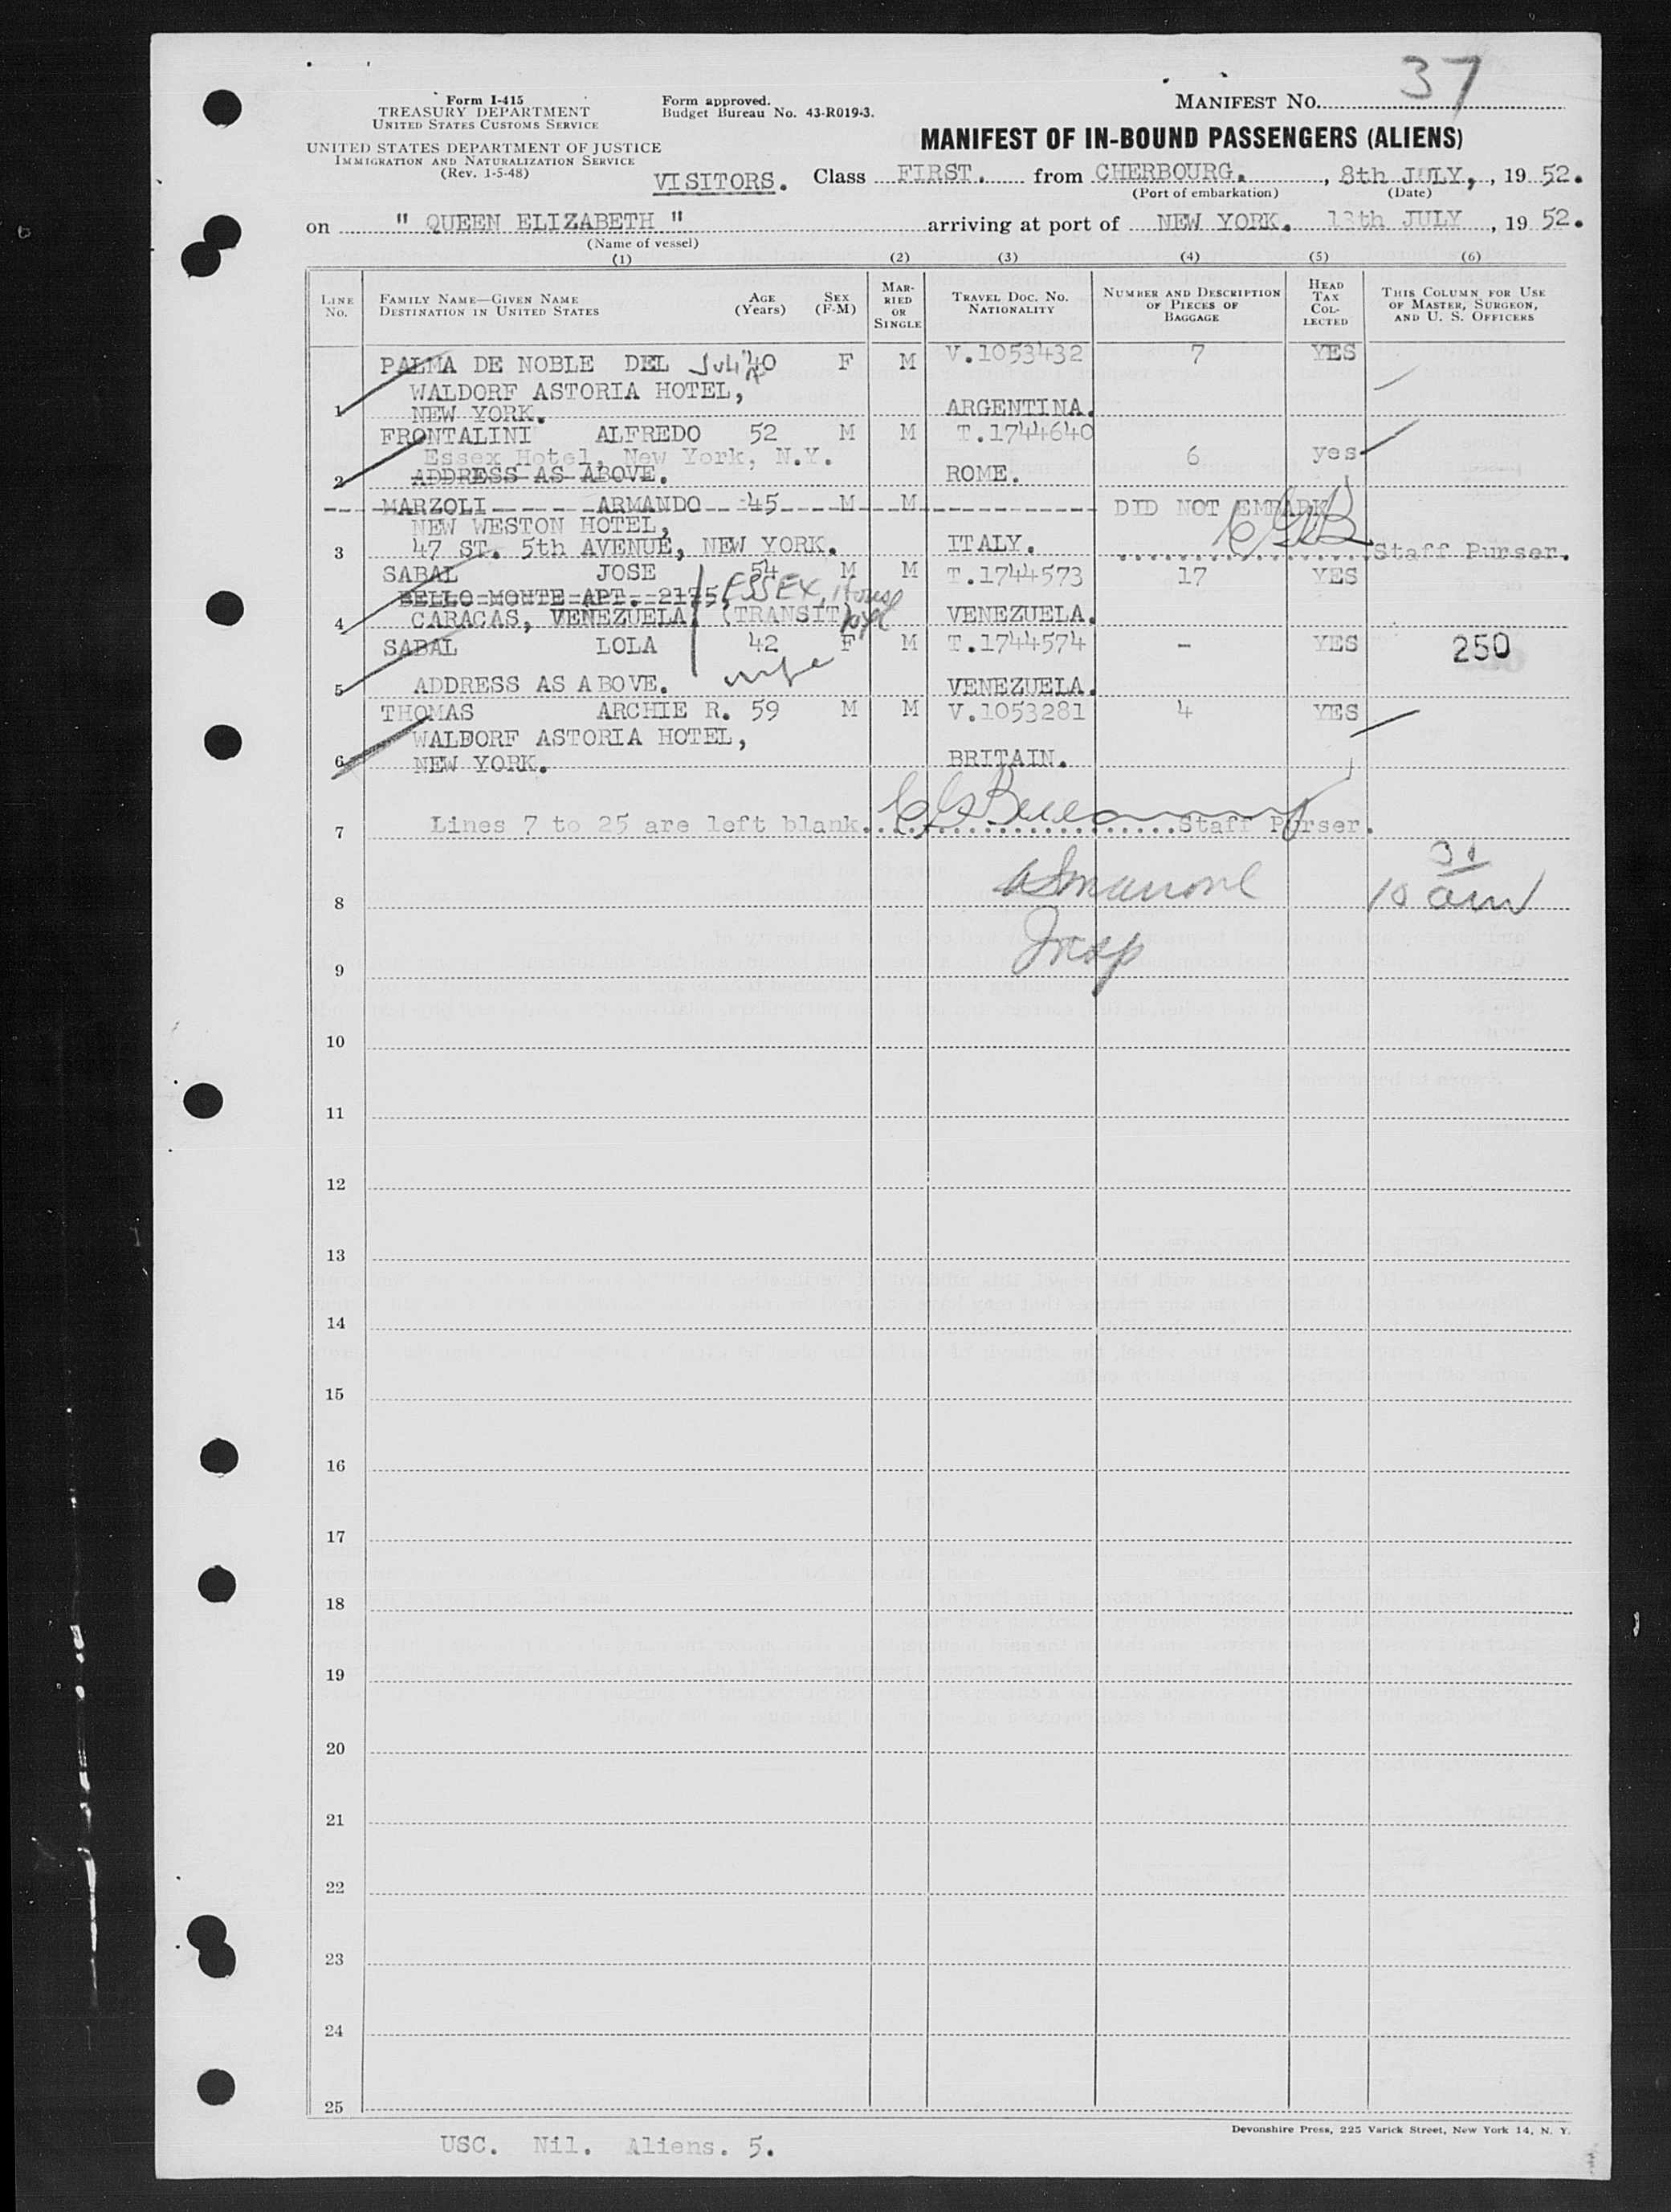 37
Form I-415
TREASURY DEPARTMENT
UNITED STATES CUSTOMS SERVICE
UNITED STATES DEPARTMENT OF JUSTICE
IMMIGRATION AND NATURALIZATION SERVICE
(Rev. 1-5-48)
Form approved.
Budget Bureau No. 43-R019-3.
MANIFEST NO.
MANIFEST OF IN-BOUND PASSENGERS (ALIENS)
VISITORS. Class FIRST. from CHERBOURG. , 8th JULY, , 19 52.
(Port of embarkation) (Date)
on " QUEEN ELIZABETH " arriving at port of NEW YORK. 13th JULY , 19 52.
(Name of vessel)
(1) (2) (3) (4) (5) (6)
LINE NO.
FAMILY NAME—GIVEN NAME
DESTINATION IN UNITED STATES
AGE (Years)
SEX (F-M)
MARRIED OR SINGLE
TRAVEL DOC. NO. NATIONALITY
NUMBER AND DESCRIPTION OF PIECES OF BAGGAGE
HEAD TAX COLLECTED
THIS COLUMN FOR USE OF MASTER, SURGEON, AND U. S. OFFICERS
PALMA DE NOBLE DEL Julia 40 F M V.1053432 7 YES
WALDORF ASTORIA HOTEL,
1 NEW YORK. ARGENTINA.
FRONTALINI ALFREDO 52 M M T.1744640
Essex Hotel, New York, N.Y. 6 yes
2 ADDRESS AS ABOVE. ROME.
MARZOLI ARMANDO 45 M M DID NOT EMBARK
NEW WESTON HOTEL,
3 47 ST. 5th AVENUE, NEW YORK. ITALY. Staff Purser.
SABAL JOSE 54 M M T.1744573 17 YES
BELLO MONTE APT. 2175, ESSEX House
4 CARACAS, VENEZUELA (TRANSIT) VENEZUELA.
SABAL LOLA 42 F M T.1744574 - YES 250
wife
5 ADDRESS AS ABOVE. VENEZUELA.
THOMAS ARCHIE R. 59 M M V.1053281 4 YES
WALDORF ASTORIA HOTEL,
6 NEW YORK. BRITAIN.
7 Lines 7 to 25 are left blank. Staff Purser.
8 10 am
9 Insp
10
11
12
13
14
15
16
17
18
19
20
21
22
23
24
25
Devonshire Press, 225 Varick Street, New York 14, N. Y.
USC. Nil. Aliens. 5.